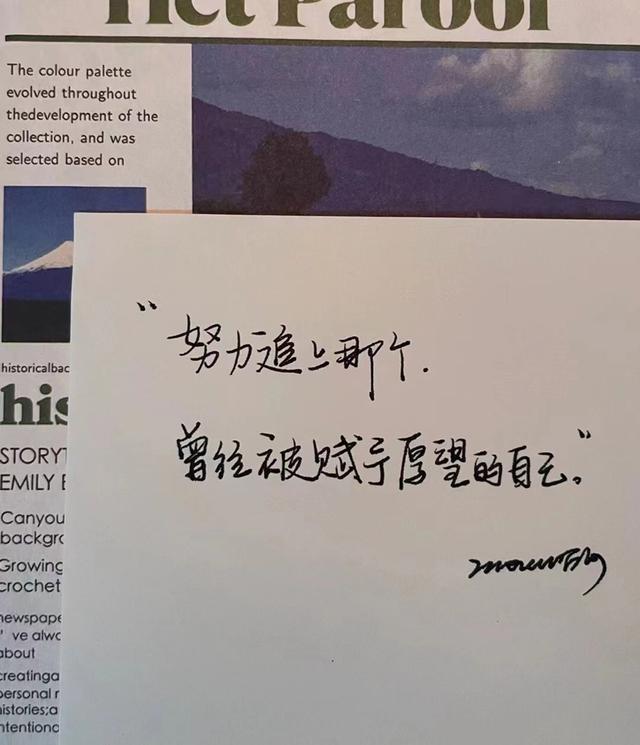 Het Parool
The colour palette
evolved throughout
thedevelopment of the
collection, and was
selected based on
“努力追上那个.
曾经被赋予厚望的自己。”
historicalbac
his
STORYT
EMILY
Canyou
backgro
Growing
crochet
newspape
’ve alwa
about
creatinga
personal r
histories;a
intentiona